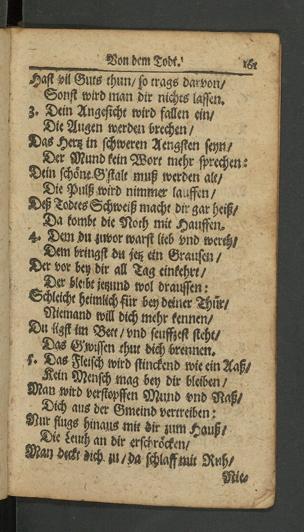 Von dem Todt. 161
Hast vil Guts thun/ so trags darvon/
Sonst wird man dir nichts lassen.
3. Dein Angesicht wird fallen ein/
Die Augen werden brechen/
Das Hertz in schweren Aengsten seyn/
Der Mund kein Wort mehr sprechen:
Dein schöne G'stalt muß werden alt/
Die Pulß wird nimmer lauffen/
Deß Todtes Schweiß macht dir gar heiß/
Da kombt die Noth mit Hauffen.
4. Dem du zuvor warst lieb vnd werth/
Dem bringst du jetz ein Grausen/
Der vor bey dir all Tag einkehrt/
Der bleibt jetzund wol draussen:
Schleicht heimlich für bey deiner Thür/
Niemand will dich mehr kennen/
Du ligst im Bett/ vnd seuffzest steht/
Das G'wissen thut dich brennen.
5. Das Fleisch wird stinckend wie ein Aaß/
Kein Mensch mag bey dir bleiben/
Man wird verstopffen Mund vnd Naß/
Dich auß der Gmeind vertreiben:
Nur flugs hinaus mit dir zum Hauß/
Die Leuth an dir erschröcken/
Man deckt dich zu/ da schlaff mit Ruh/
Nie-